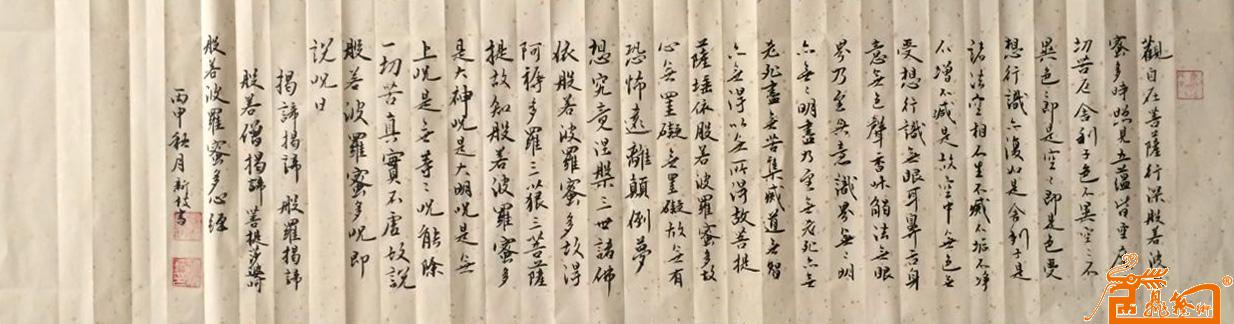 觀自在菩薩行深般若波
蜜多時照見五蘊皆空度
切苦厄舍利子色不異空空不
異色色即是空空即是色受
想行識亦復如是舍利子是
諸法空相不生不滅不垢不淨
不增不減是故空中無色無
受想行識無眼耳鼻舌身
意無色聲香味觸法無眼
界乃至無意識界無無明
亦無無明盡乃至無老死亦無
老死盡無苦集滅道無智
亦無得以無所得故菩提
薩埵依般若波羅蜜多故
心無罣礙無罣礙故無有
恐怖遠離顛倒夢
想究竟涅槃三世諸佛
依般若波羅蜜多故得
阿耨多羅三藐三菩
提故知般若波羅蜜多
是大神呪是大明呪是無
上呪是無等等呪能除
一切苦真實不虛故說
般若波羅蜜多呪即
說呪曰
揭諦揭諦 般羅揭諦
般若僧揭諦 菩提莎婆
般若波羅蜜多心經
丙申秋月